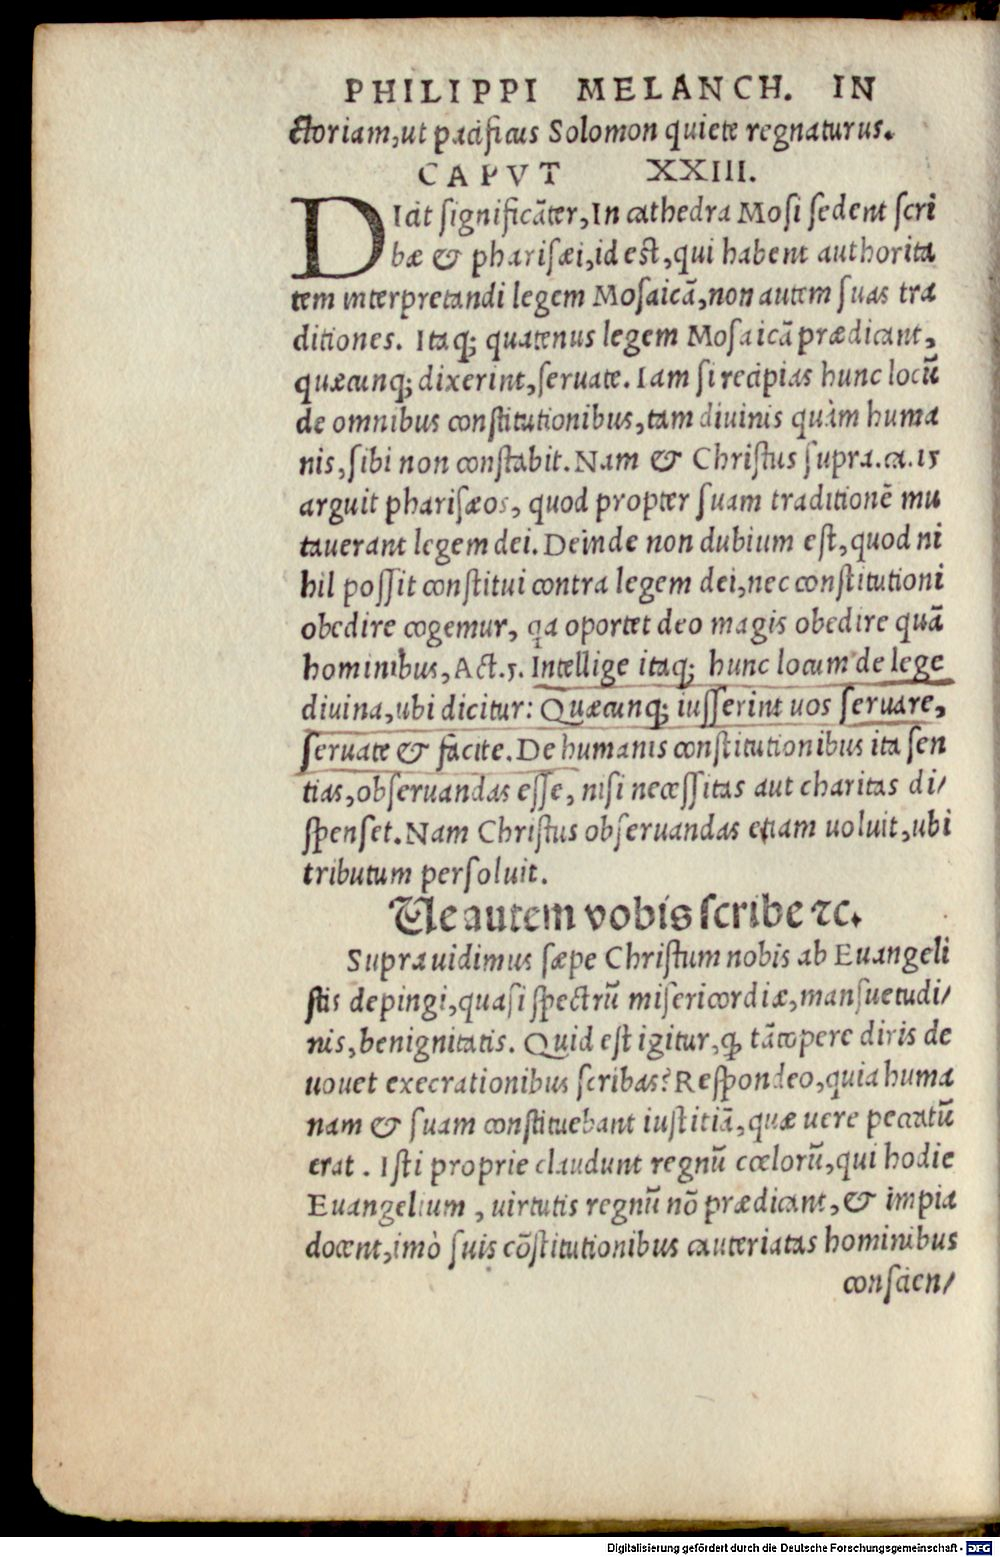 PHILIPPI MELANCH. IN
ctoriam, ut pacificus Solomon quiete regnaturus.
CAPVT XXIII.
DIcit significãter, In cathedra Mosi sedent scri
bæ & pharisæi, id est, qui habent authorita
tem interpretandi legem Mosaicã, non autem suas tra
ditiones. Itaq; quatenus legem Mosaicã prædicant,
quæcunq; dixerint, seruate. Iam si recipias hunc locũ
de omnibus constitutionibus, tam diuinis quàm huma
nis, sibi non constabit. Nam & Christus supra. ca. 15
arguit pharisæos, quod propter suam traditionẽ mu
tauerant legem dei. Deinde non dubium est, quod ni
hil possit constitui contra legem dei, nec constitutioni
obedire cogemur, qa oportet deo magis obedire quã
hominibus, Act. 5. Intellige itaq; hunc locum de lege
diuina, ubi dicitur: Quæcunq; iusserint uos seruare,
seruate & facite. De humanis constitutionibus ita sen
tias, obseruandas esse, nisi necessitas aut charitas di/
spenset. Nam Christus obseruandas etiam uoluit, ubi
tributum persoluit.
Ue autem vobis scribe ⁊c.
Supra uidimus sæpe Christum nobis ab Euangeli
stis depingi, quasi spectrũ misericordiæ, mansuetudi/
nis, benignitatis. Quid est igitur, ꝙ tãtopere diris de
uouet execrationibus scribas? Respondeo, quia huma
nam & suam constituebant iustitiã, quæ uere peccatũ
erat. Isti proprie claudunt regnũ cœlorũ, qui hodie
Euangelium, uirtutis regnũ nõ prædicant, & impia
docent, imò suis cõstitutionibus cauteriatas hominibus
conscien/
Digitalisierung gefördert durch die Deutsche Forschungsgemeinschaft - DFG